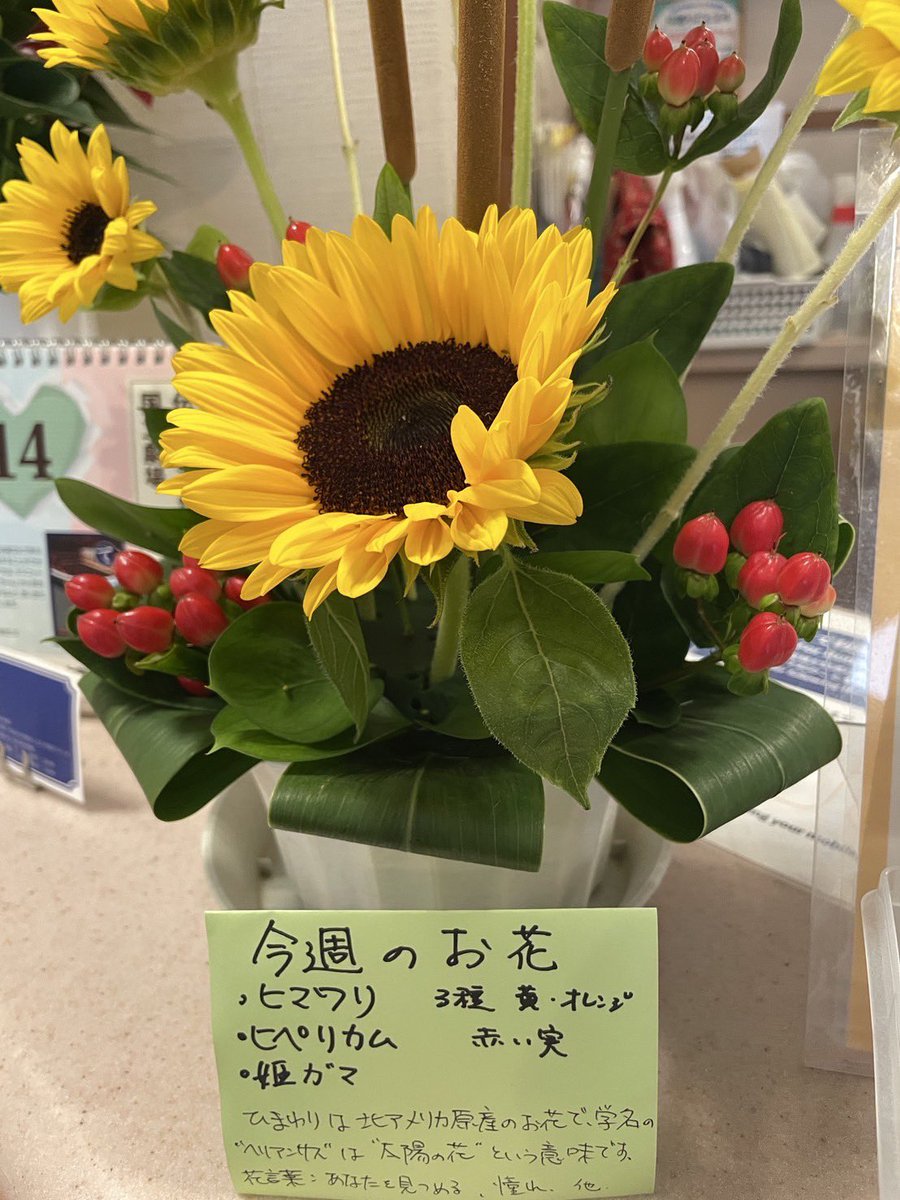 14
今週のお花
・ヒマワリ 3種 黄・オレンジ
・ヒペリカム 赤い実
・姫ガマ
ひまわりは北アメリカ原産のお花で、学名の
"ヘリアンサズ"は"太陽の花"という意味です。
花言葉:あなたを見つめる、憧れ、他